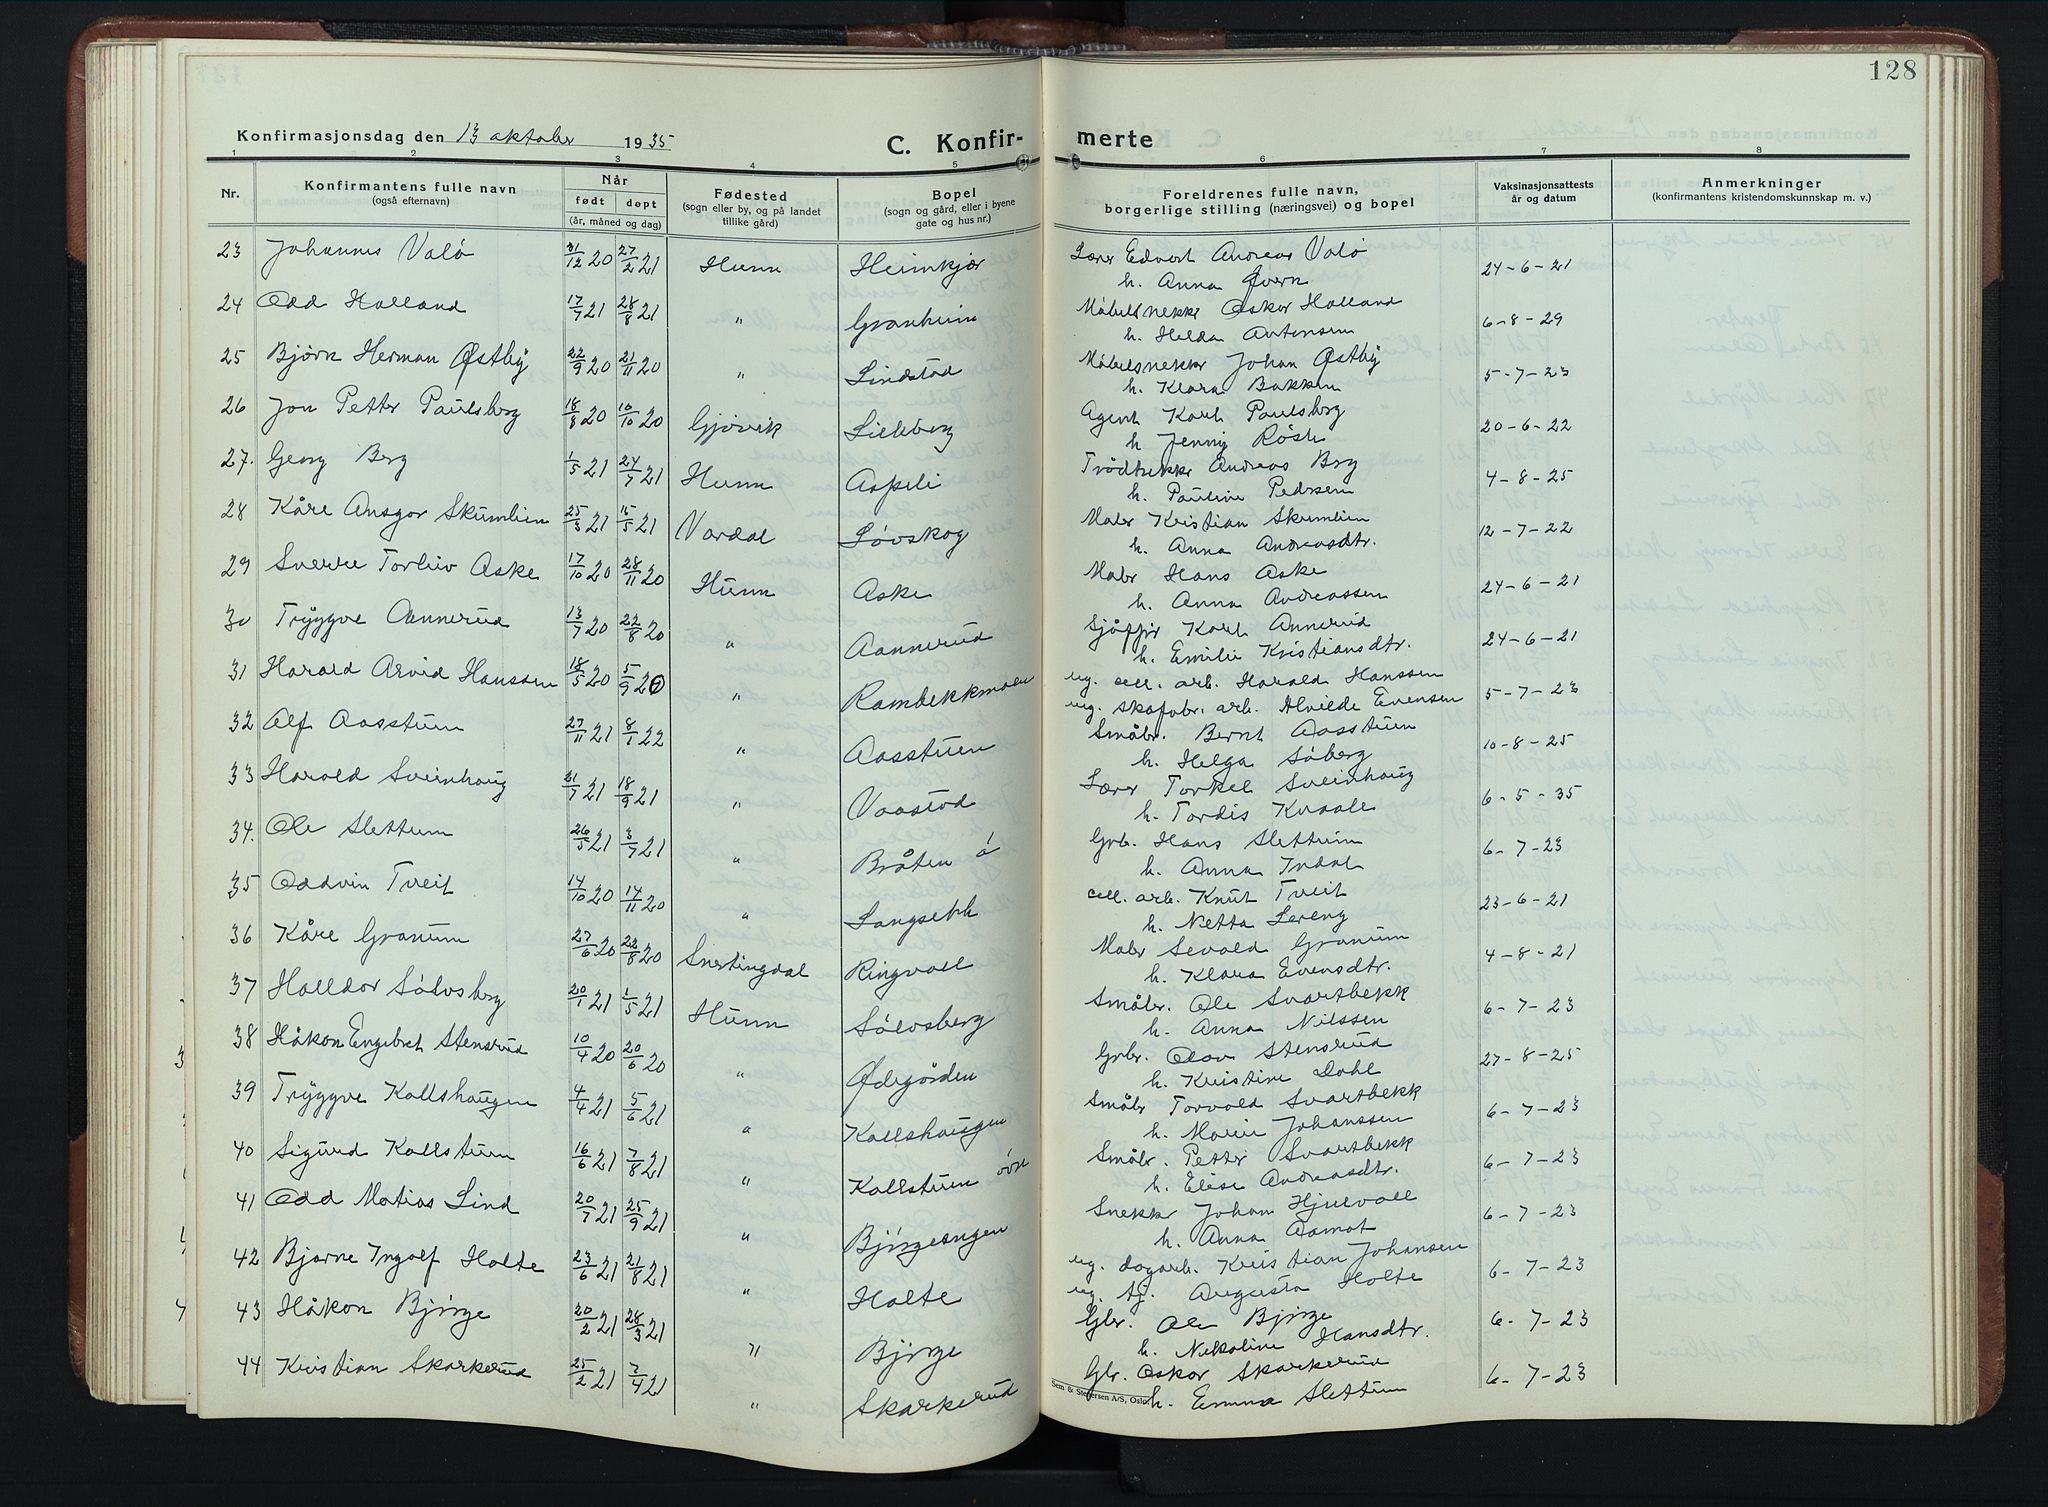 128
Konfirmasjonsdag den 13 oktober 1935
C. Konfirmerte
1 2 3 4 5 6 7 8
Nr. Konfirmantens fulle navn (også efternavn) Når født døpt (år, måned og dag) Fødested (sogn eller by, og på landet tillike gård) Bopel (sogn og gård, eller i byene gate og hus nr.) Foreldrenes fulle navn, borgerlige stilling (næringsvei) og bopel Vaksinasjonsattests år og datum Anmerkninger (konfirmantens kristendomskunnskap m. v.)
23 Johannes Valø 31/12 20 27/2 21 Hunn Heimkjær Lærer Edvert Andreas Valø 24-6-21
h. Anna Øvern
24 Odd Holland 17/7 21 28/8 21 " Granheim Møbelsnekker Oskar Holland 6-8-29
h. Helda Antonsen
25 Bjørn Herman Østby 22/9 20 21/11 20 " Lindstad Møbelsnekker Johan Østby 5-7-23
h. Klara Bakken
26 Jon Petter Paulsberg 18/8 20 10/10 20 Gjøvik Lilleberg Agent Karl Paulsberg 20-6-22
h. Jenny Røste
27. Georg Berg 1/5 21 24/7 21 Hunn Aspeli Trådtrekker Andreas Berg 4-8-25
h. Pauline Pedersen
28 Kåre Ansgar Skumlien 25/3 21 15/5 21 Vardal Løvskog Maler Kristian Skumlien 12-7-22
h. Anna Andreasdtr.
29 Sverre Torleiv Aske 17/10 20 28/11 20 Hunn Aske Maler Hans Aske 24-6-21
h. Anna Andreassen
30 Tryggve Aannerud 13/7 20 22/8 20 " Aannerud Sjåfør Karl Annerud 24-6-21
h. Emilie Kristiansdtr.
31 Harald Arvid Hanssen 18/5 20 5/9 20 " Rambekkmoen ug. cell. arb. Harald Hanssen 5-7-23
ug. skofabr. arb. Alvilde Evensen
32 Alf Aasstuen 27/11 21 8/1 22 " Aasstuen Småbr. Bernt Aasstuen 10-8-25
h. Helga Søberg
33 Harald Sveinhaug 21/7 21 18/9 21 " Vaastad Lærer Torkel Sveinhaug 6-5-35
h. Tordis Kvaale
34. Ole Slettum 26/5 21 3/7 21 " Bråten ø Grb. Hans Slettum 6-7-23
h. Anna Indal
35 Oddvin Tveit 14/10 20 14/11 20 " Langseth cell. arb. Knut Tveit 23-6-21
h. Netta Lereng
36 Kåre Granum 27/6 20 22/8 20 Snertingdal Ringvoll Maler Sevald Granum 4-8-21
h. Klara Evensdtr.
37 Halldor Sølvsberg 20/1 21 1/5 21 Hunn Sølvsberg Småbr. Ole Svartbekk 6-7-23
h. Anna Nilssen
38 Håkon Engebret Stensrud 10/4 20 20/6 20 " Ødegården Grbr. Olav Stensrud 27-8-25
h. Kristine Dahl
39 Tryggve Kallshaugen 4/4 21 5/6 21 " Kallshaugen Småbr Torvald Svartbekk 6-7-23
h. Marie Johanssen
40 Sigurd Kollstuen 16/6 21 7/8 21 " Kollstuen øvre Småbr. Petter Svartbekk 6-7-23
h. Elise Andreasdtr.
41 Odd Matias Lind 20/7 21 25/9 21 " Bjørgesngen Snekker Johan Hjulvall 6-7-23
h. Anna Aamot
42 Bjarne Ingolf Holte 23/6 21 21/8 21 " Holte ug. dagarb. Kristian Johansen 6-7-23
ug. tj. Augusta Holte
43 Håkon Bjørge 20/2 21 28/3 21 " Bjørge Gbr. Ole Bjørge 6-7-23
h. Nikoline Hansdtr.
44 Kristian Skarkerud 25/2 21 7/4 21 " Skarkerud Gbr. Oskar Skarkerud 6-7-23
h. Emma Slettum
Sem & Stenersen A/S, Oslo.